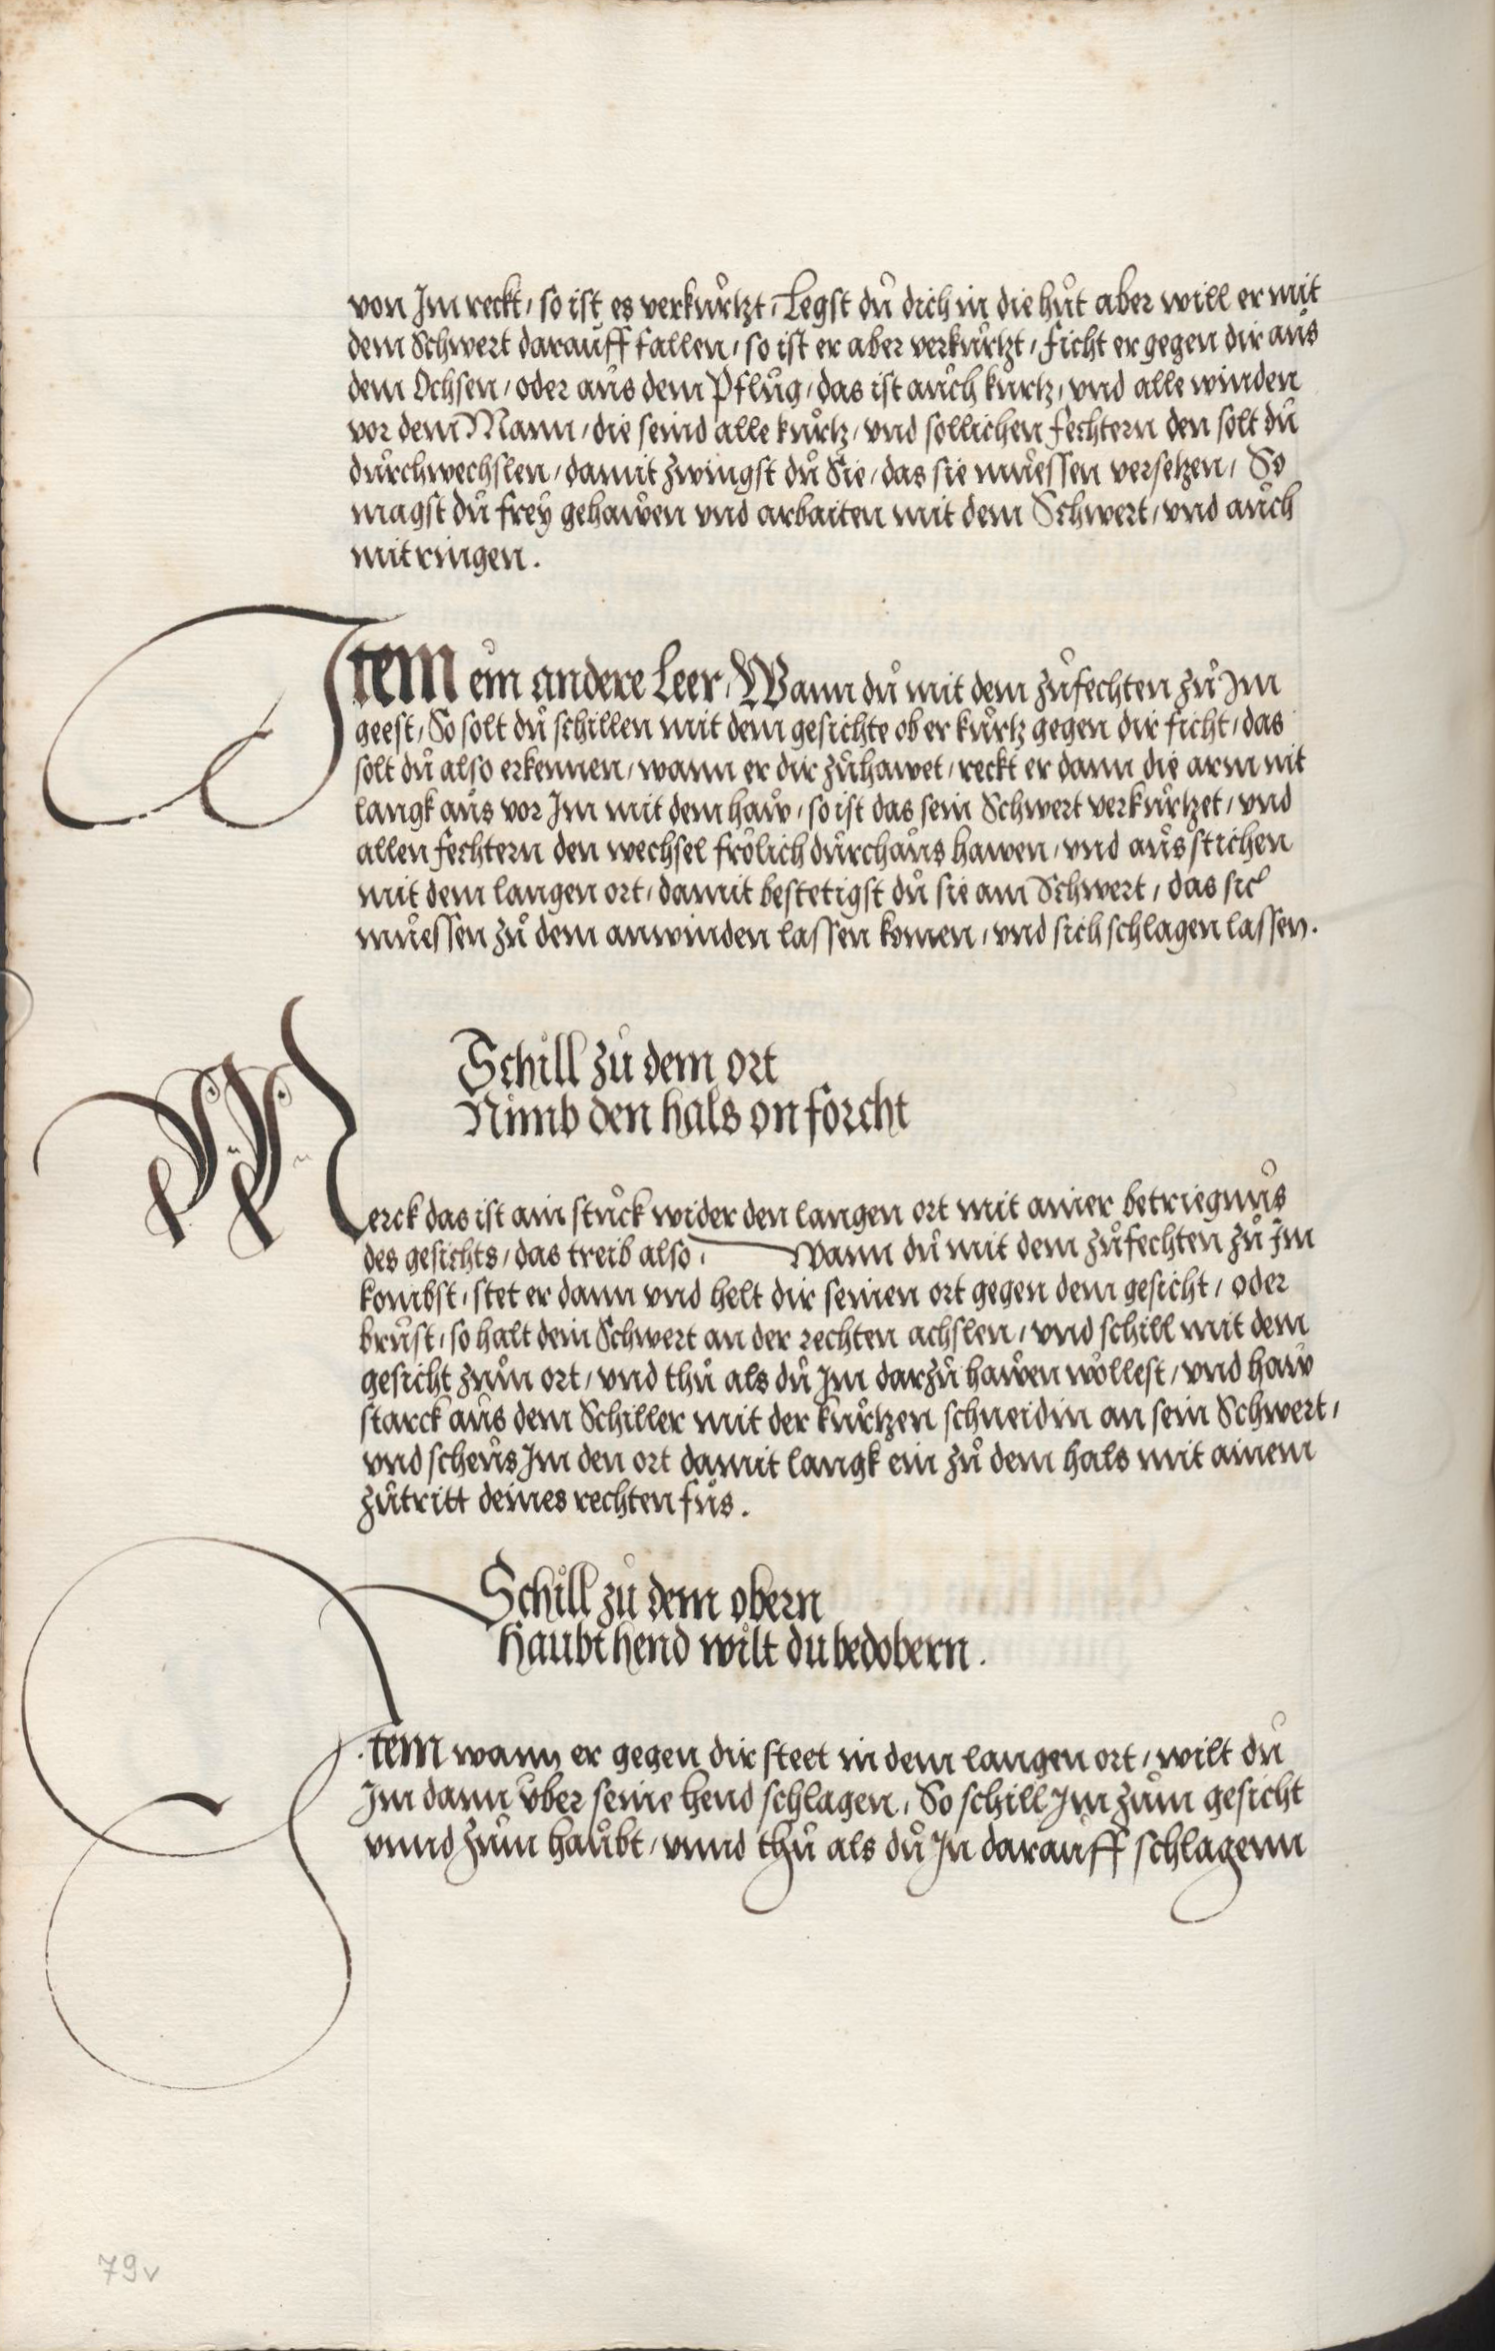 von Im reckt / so ist es verkůrtzt / Legst dů dich in die hůt aber will er mit
dem Schwert darauff fallen / so ist er aber verkůrtzt / ficht er gegen dir aůs
dem Ochsen / oder aůs dem Pflůg / das ist aůch kůrtz / vnd alle winden
vor dem Mann / die seind alle kůrtz / vnd sollichen fechtern den solt dů
důrchwechslen / damit zwingst dů Sie / das sie můessen versetzen / So
magst dů frey gehawen vnd arbaiten mit dem Schwert / vnd aůch
mit ringen .
Item ein andere Leer / Wann dů mit dem zůfechten zů Im
geest / So solt dů schillen mit dem gesichte ob er kůrtz gegen dir ficht / das
solt dů also erkennen / wann er dir zůhawet / reckt er dann die arm nit
langk aůs vor Im mit dem haw / so ist das sein Schwert verkůrtzet / vnd
allen fechtern den wechsel frölich důrchaůs hawen / vnd aůsstichen
mit dem langen ort / damit bestetigst dů sie am Schwert / das sie
můessen zů dem anwinden lassen komen / vnd sich schlagen lassen .
Schill zu dem ort
Nimb den hals on forcht
Merck das ist ain stůck wider den langen ort mit ainer betriegnůs
des gesichts / das treib also / Wann dů mit dem zůfechten zů Im
kombst / stet er dann vnd helt dir seinen ort gegen dem gesicht / oder
brůst / so halt dein Schwert an der rechten achslen / vnd schill mit dem
gesicht zům ort / vnd thů als dů Im darzů hawen wöllest / vnd haw
starck aůs dem Schiller mit der kůrtzen schneidin an sein Schwert /
vnd scheůs Im den ort damit langk ein zů dem hals mit ainem
zůtritt deines rechten fůs .
Schill zu dem obern
Haubt hend wilt du bedobern .
Item wann er gegen dir steet in dem langen ort / wilt dů
Im dann vber seine hend schlagen / So schill Im zům gesicht
vnnd zům haůbt / vnnd thů als dů In darauff schlagenn
79v